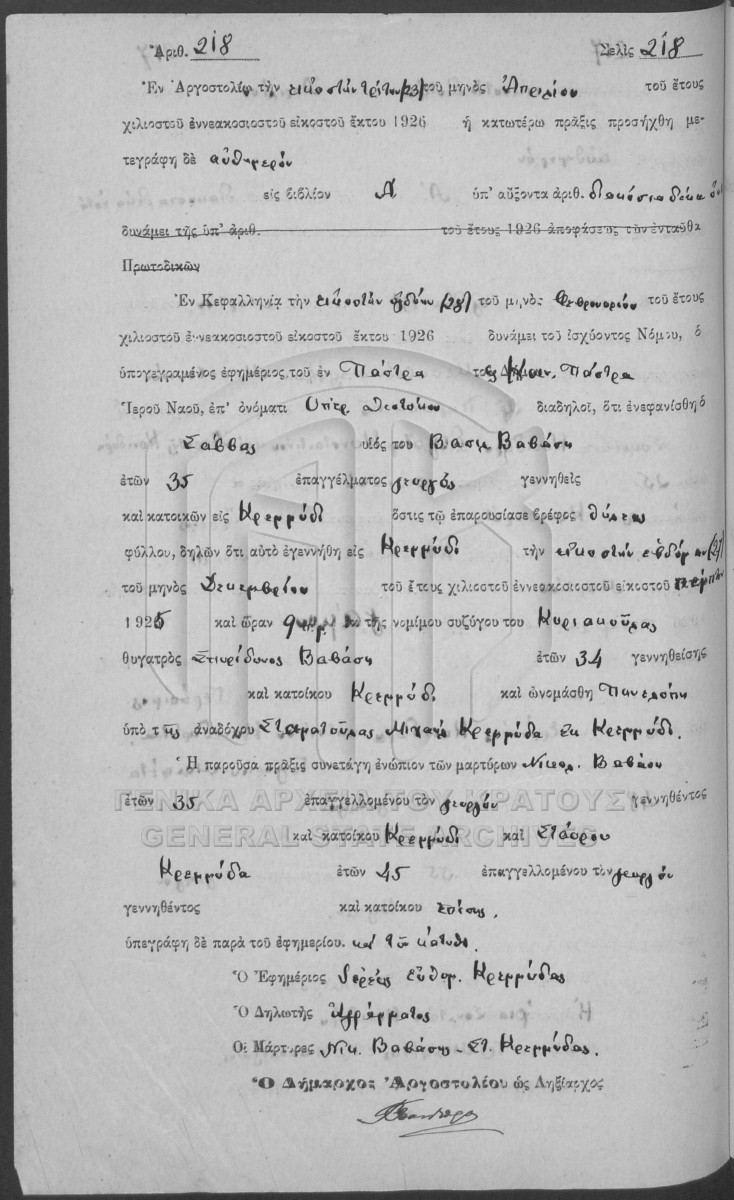 Ἀριθ. 218 Σελὶς 218
Ἐν Ἀργοστολίῳ τὴν εἰκοστὴν τρίτην (23) τοῦ μηνὸς Ἀπριλίου τοῦ ἔτους
χιλιοστοῦ ἐννεακοσιοστοῦ εἰκοστοῦ ἕκτου 1926 ἡ κατωτέρω πρᾶξις προσήχθη με-
τεγράφη δὲ αὐθημερὸν
εἰς βιβλίον Α ὑπ' αὔξοντα ἀριθ. διακόσια δέκα
δυνάμει τῆς ὑπ' ἀριθ. τοῦ ἔτους 1926 ἀποφάσεως τῶν ἐνταῦθα
Πρωτοδικῶν
Ἐν Κεφαλληνίᾳ τὴν εἰκοστὴν ὀγδόην (28) τοῦ μηνὸς Φεβρουαρίου τοῦ ἔτους
χιλιοστοῦ ἐννεακοσιοστοῦ εἰκοστοῦ ἕκτου 1926 δυνάμει τοῦ ἰσχύοντος Νόμου, ὁ
ὑπογεγραμένος ἐφημέριος τοῦ ἐν Πάστρα Κοιν. Πάστρα
Ἱεροῦ Ναοῦ, ἐπ' ὀνόματι Ὑπερ. Θεοτόκου διαδηλοῖ, ὅτι ἐνεφανίσθη ὁ
Σάββας υἱὸς του Βασιλ. Βαβάση
ἐτῶν 35 ἐπαγγέλματος γεωργὸς γεννηθεὶς
καὶ κατοικῶν εἰς Κρεμμύδι ὅστις τῷ ἐπαρουσίασε βρέφος θήλεως
φύλλου, δηλῶν ὅτι αὐτὸ ἐγεννήθη εἰς Κρεμμύδι τὴν εἰκοστὴν ἑβδόμην (27)
τοῦ μηνὸς Δεκεμβρίου τοῦ ἔτους χιλιοστοῦ ἐννεακοσιοστοῦ εἰκοστοῦ πέμπτου
1925 καὶ ὥραν 9 ἐκ τῆς νομίμου συζύγου του Κυριακούλας
θυγατρὸς Σπυρίδωνος Βαβάση ἐτῶν 34 γεννηθείσης
καὶ κατοίκου Κρεμμύδι καὶ ὠνομάσθη Πανελόπη
ὑπὸ τῆς ἀναδόχου Σταματούλας Μιχαὴλ Κρεμμύδα ἐκ Κρεμμύδι.
Ἡ παροῦσα πρᾶξις συνετάγη ἐνώπιον τῶν μαρτύρων Νικολ. Βαβάση
ἐτῶν 35 ἐπαγγελλομένου τὸν γεωργὸν γεννηθέντος
ΓΕΝΙΚΑ ΑΡΧΕΙΑ ΤΟΥ ΚΡΑΤΟΥΣ
καὶ κατοίκου Κρεμμύδι καὶ Σταύρου
GENERAL STATE ARCHIVES
Κρεμμύδα ἐτῶν 45 ἐπαγγελλομένου τὸν γεωργὸν
γεννηθέντος καὶ κατοίκου ἐπίσης.
ὑπεγράφη δὲ παρὰ τοῦ ἐφημερίου. καὶ τῶν κάτωθι.
Ὁ Ἐφημέριος Ἱερεὺς Εὐθυμ. Κρεμμύδας
Ὁ Δηλωτὴς Ἀγράμματος
Οἱ Μάρτυρες Νικ. Βαβάσης - Στ. Κρεμμύδας.
Ὁ Δήμαρχος Ἀργοστολίου ὡς Ληξίαρχος